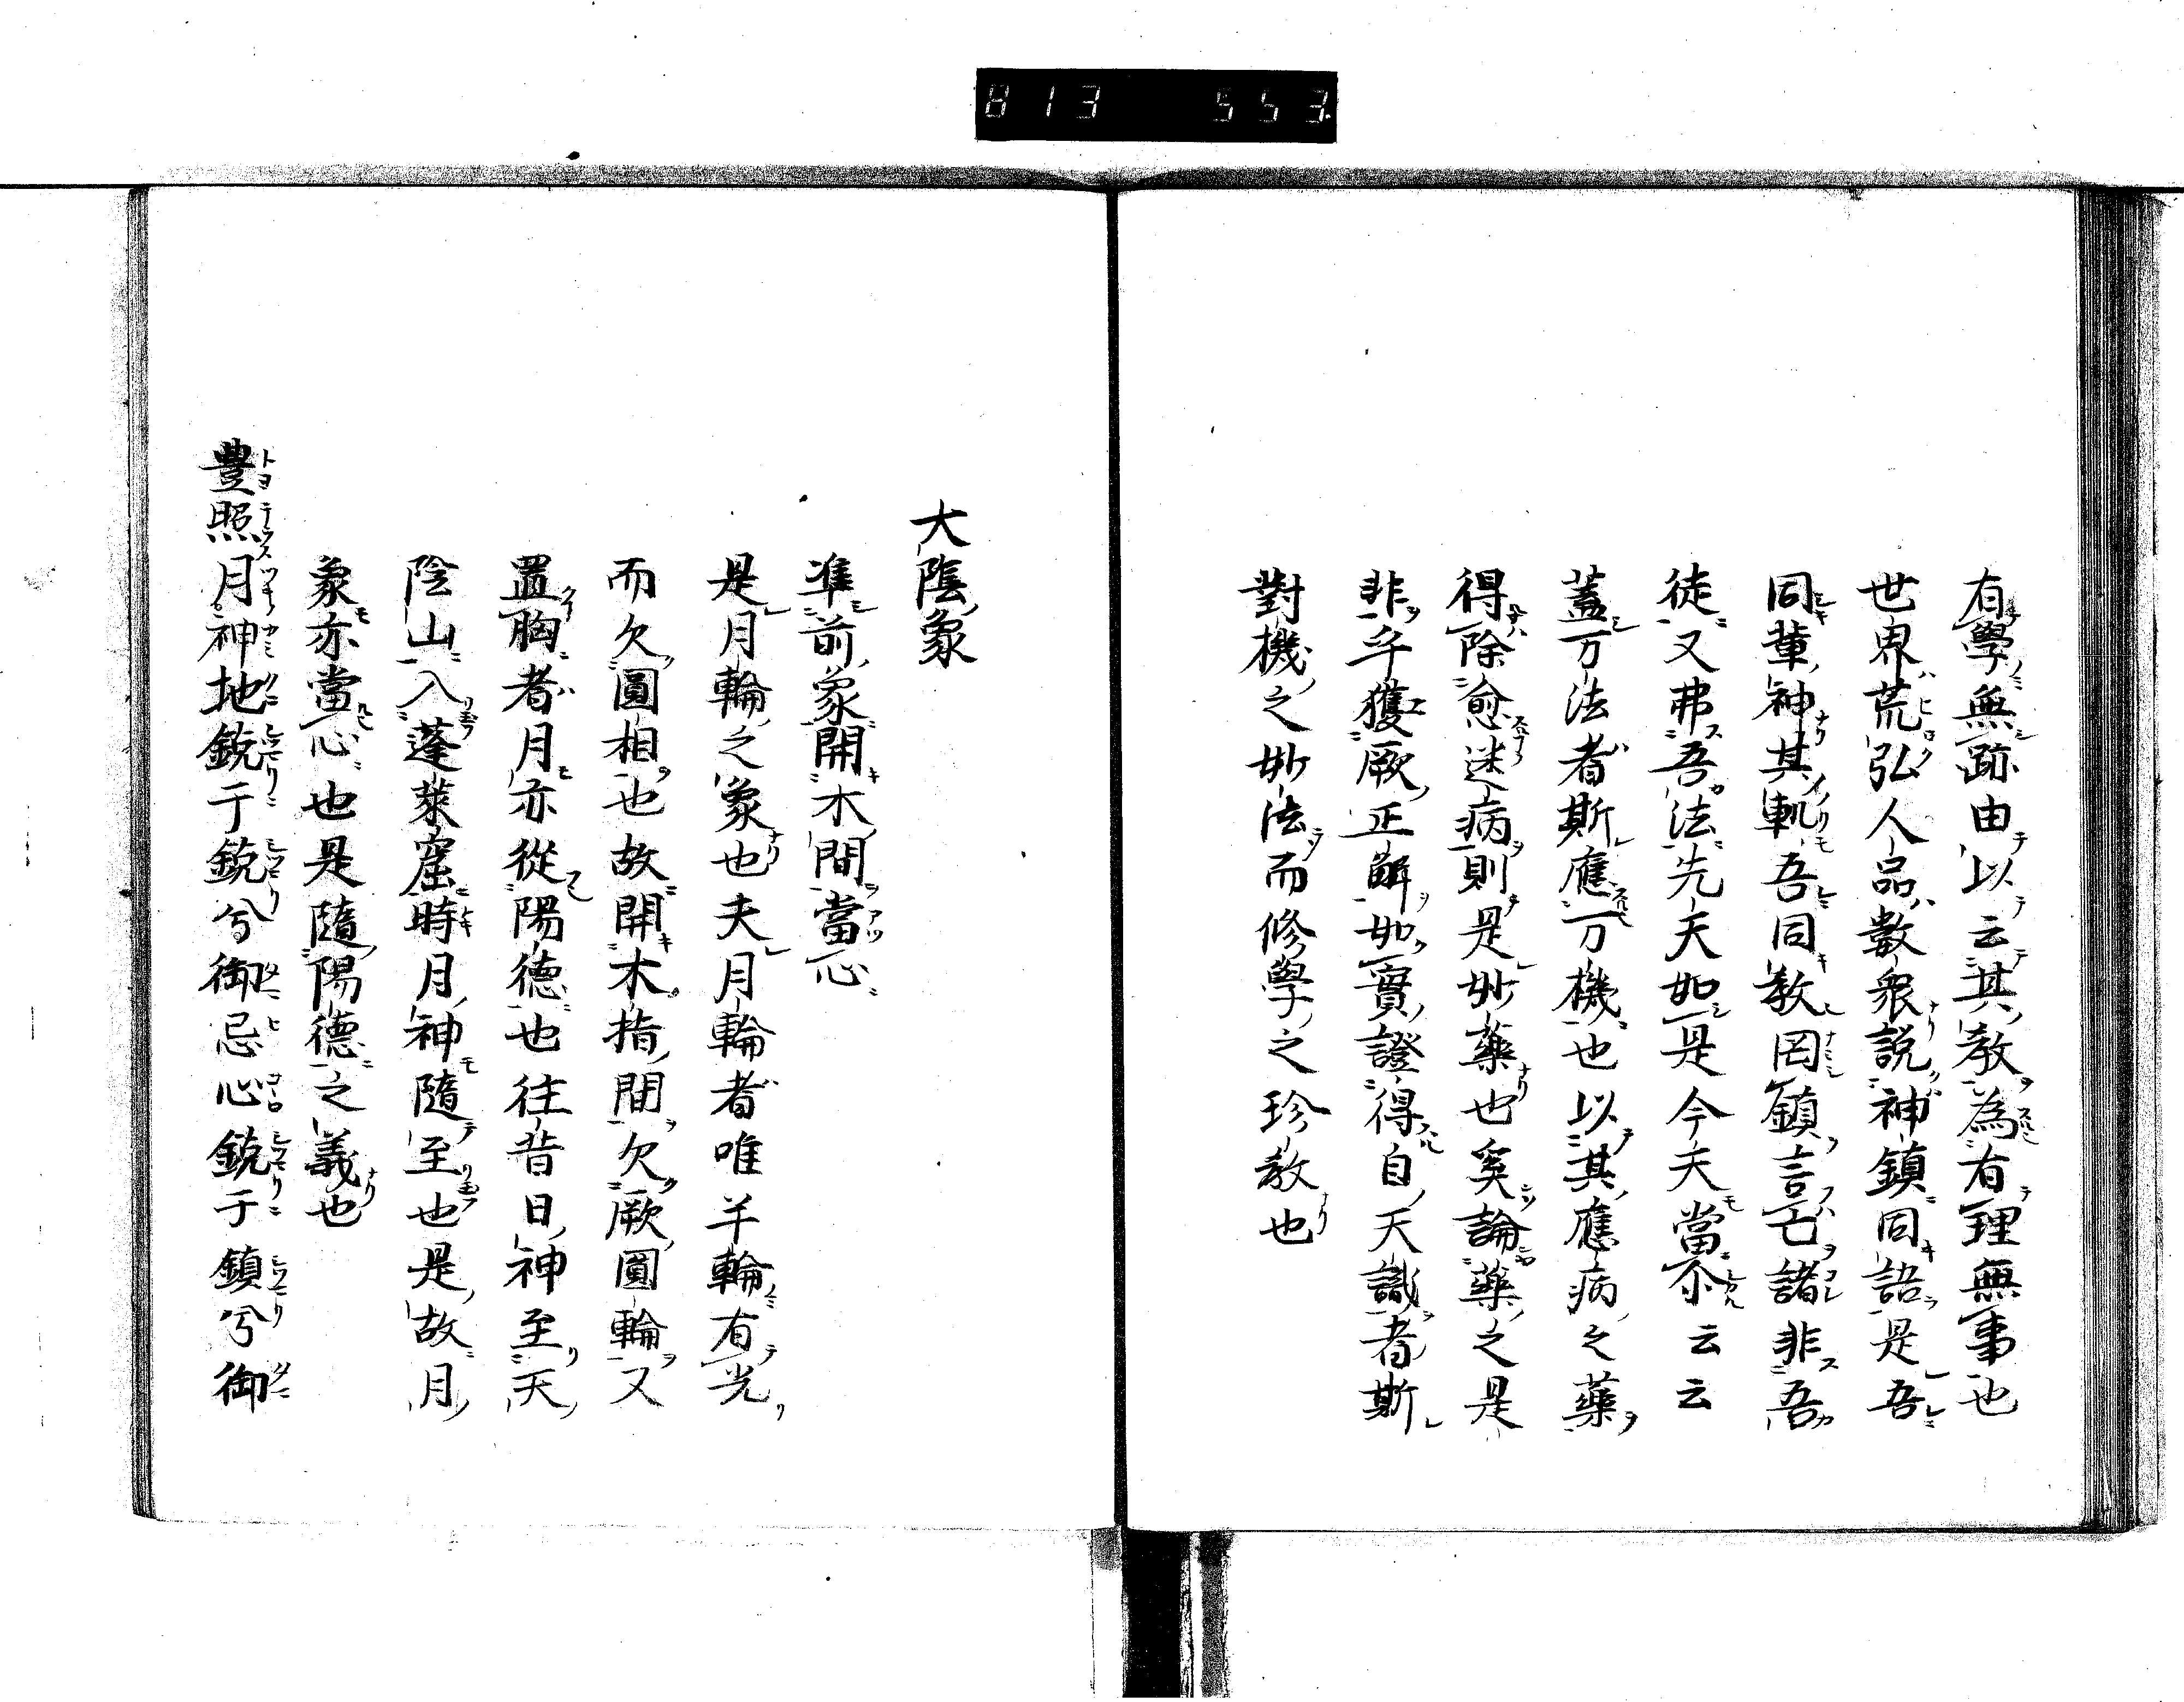 813 553
有學無跡由以云其教為有理無事也
世界荒弘人品數衆說神鎮同語是吾
同輩神其軌吾同教罔鎮言亡諸非吾
徒又弗吾法先夫如是今夫當尒云云
蓋万法者斯應万機也以其應病之藥
得除愈迷病則是妙藥也奚論藥之是
非乎獲厥正解如實證得自天識者斯
對機之妙法而修學之珍教也
大陰象
准前象開木間當心
是月輪之象也夫月輪者唯半輪有光
而欠圓相也故開木指間欠厥圓輪又
置胸者月亦從陽德也往昔日神至天
陰山入蓬萊窟時月神隨至也是故月
象亦當心也是隨陽德之義也
豊照月神地鋭于鋭兮御忌心鋭于鎮兮御